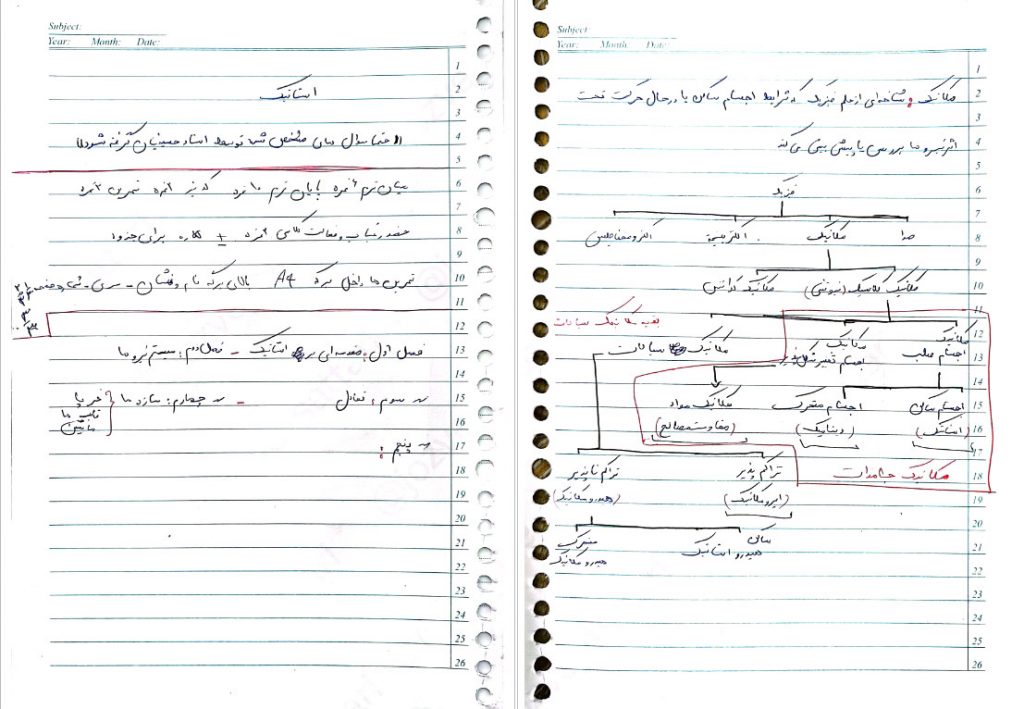 Subject:
Year: Month: Date:
استاتیک
"حتما سوال های مشخص شده توسط استاد حسینیان گرفته شود"
میان ترم ۶ نمره پایان ترم ۱۰ نمره کوئیز ۲ نمره تمرین ۲ نمره
حضور غیاب و فعالت کلاسی ۲ نمره ± نمره برای جزوه
تمرین ها داخل برگه A4 بالای برگه نام و نشان -
فصل اول: مقدمه ای بر استاتیک - فصل دوم: سیستم نیروها
~ سوم: تعادل - ~ چهارم: سازه ها { خرپا
قاب ها
ماشین
~ پنجم:
1
2
3
4
5
6
7
8
9
10
11
12
13
14
15
16
17
18
19
20
21
22
23
24
25
26
Subject:
Year: Month: Date:
مکانیک: شاخه ای از علم فیزیک که شرایط اجسام ساکن یا در حال حرکت تحت
اثر نیرو ها بررسی یا پیش بینی می کند
فیزیک
صدا مکانیک الکتریسیته الکترومغناطیس
مکانیک کلاسیک (نیوتنی) مکانیک کوانتمی
مکانیک اجسام صلب
مکانیک اجسام تغییر شکل پذیر
مکانیک سیالات
اجسام ساکن (استاتیک)
اجسام متحرک (دینامیک)
مکانیک مواد (مقاومت مصالح)
مکانیک جامدات
تراکم پذیر (ایرومکانیک)
تراکم ناپذیر (هیدرومکانیک)
ساکن هیدرو استاتیک
متحرک هیدرو مکانیک
1
2
3
4
5
6
7
8
9
10
11
12
13
14
15
16
17
18
19
20
21
22
23
24
25
26